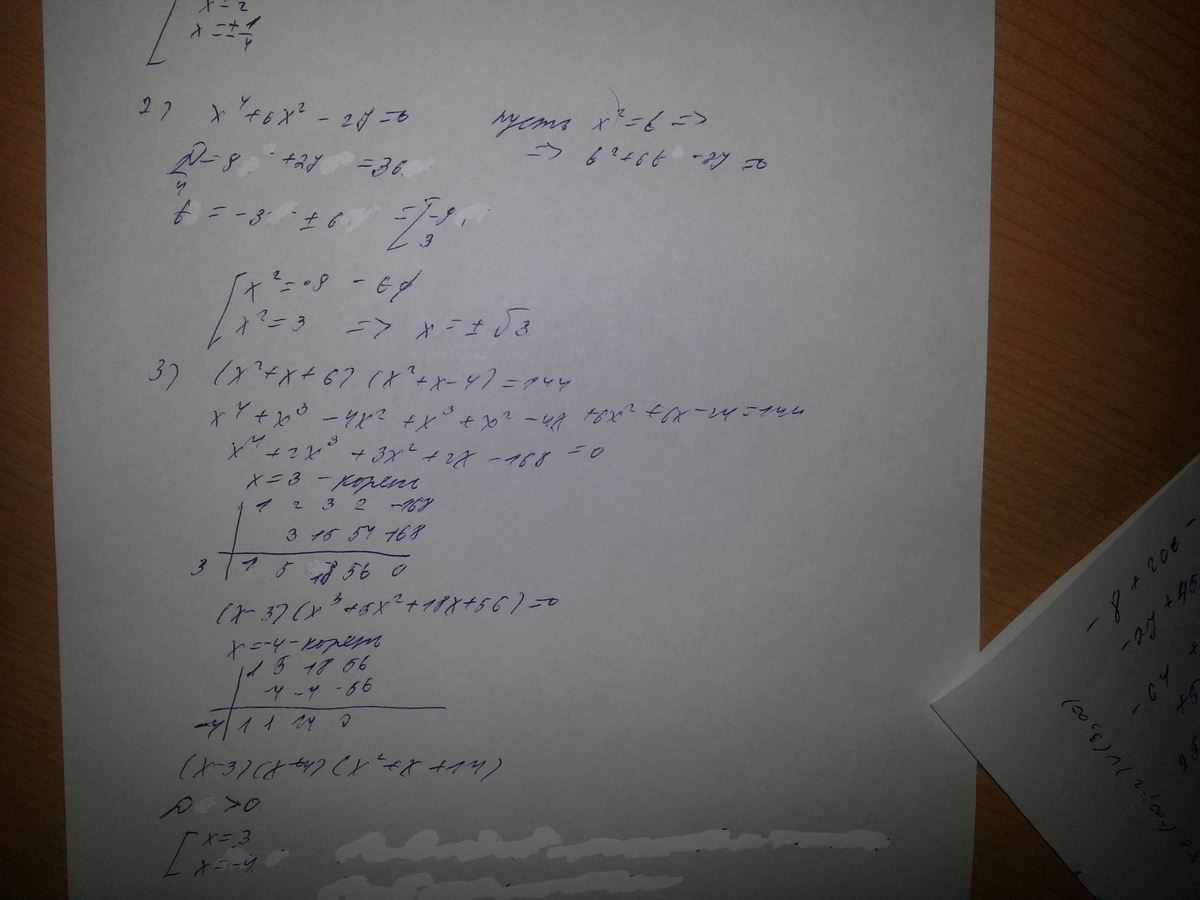 x=2
x=±1/4
2) x⁴+6x²-27=0 пусть x²=t =>
=> t²+6t -27=0
D/4=9 +27 =36
t = -3 ± 6 =[-9,
3
x²=-9 - ∈∅
x²=3 => x=±√3
3) (x²+x+6)(x²+x-4)=144
x⁴+x³-4x²+x³+x²-4x+6x²+6x-24=144
x⁴+2x³+3x²+2x-168=0
x=3 - корень
1 2 3 2 -168
3 15 54 168
3 1 5 18 56 0
(x-3)(x³+5x²+18x+56)=0
x=-4 - корень
1 5 18 56
-4 -4 -56
-4 1 1 14 0
(x-3)(x+4)(x²+x+14)
D >0
x=3
x=-4
-8+20
-27+45
-64